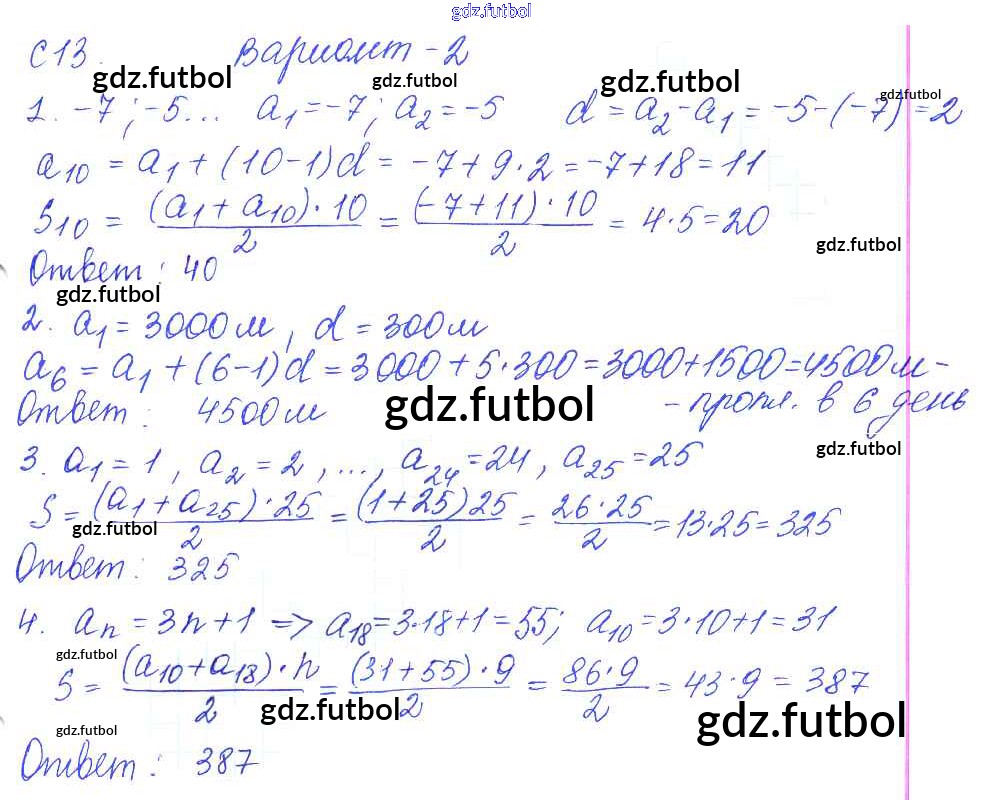 gdz.futbol
С13. Вариант - 2
gdz.futbol gdz.futbol gdz.futbol gdz.futbol
1. -7; -5... a₁ = -7; a₂ = -5 d = a₂ - a₁ = -5 - (-7) = 2
a₁₀ = a₁ + (10-1)d = -7 + 9·2 = -7 + 18 = 11
S₁₀ = (a₁ + a₁₀)·10/2 = (-7+11)·10/2 = 4·5 = 20
gdz.futbol
Ответ: 40
gdz.futbol
2. a₁ = 3000 м, d = 300 м
a₆ = a₁ + (6-1)d = 3000 + 5·300 = 3000 + 1500 = 4500 м -
Ответ: 4500 м gdz.futbol - пропл. в 6 день
gdz.futbol
3. a₁ = 1, a₂ = 2, ..., a₂₄ = 24, a₂₅ = 25
S = (a₁ + a₂₅)·25/2 = (1+25)25/2 = 26·25/2 = 13·25 = 325
gdz.futbol
Ответ: 325
4. aₙ = 3n + 1 => a₁₈ = 3·18 + 1 = 55; a₁₀ = 3·10 + 1 = 31
gdz.futbol
S = (a₁₀ + a₁₈)·n/2 = (31+55)·9/2 = 86·9/2 = 43·9 = 387
gdz.futbol gdz.futbol
gdz.futbol
Ответ: 387